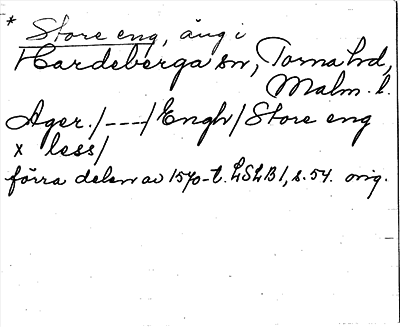 * Store eng, äng i
Hardeberga sn, Torna hd,
Malm. l.
Ager /---/ Engh / Store eng
x less /
förra delen av 1570-t. LSLB 1, s. 54. orig.